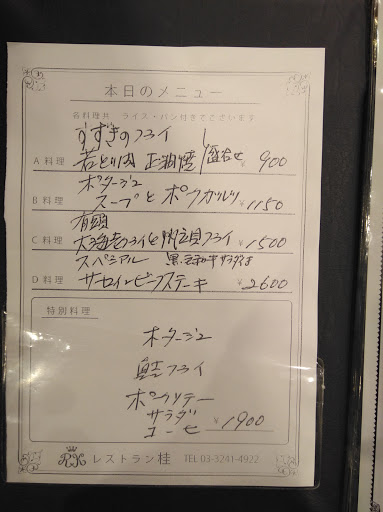 本日のメニュー
各料理共 ライス・パン付きでございます
すずきのフライ
A 料理 若どり肉 正油焼 盛合せ ¥900
ポタージュ
B 料理 スープと ポークカツレツ ¥1150
有頭
C 料理 大海老フライと帆立貝フライ ¥1500
スペシャル 黒毛和牛
D 料理 サーロインビーフステーキ ¥2600
特別料理
ポタージュ
鮭フライ
ポークソテー
サラダ
コーヒ ¥1900
RK レストラン 桂 TEL 03-3241-4922